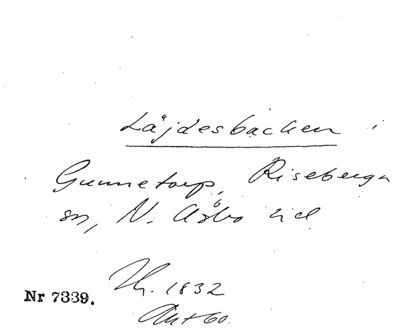 Läjdesbacken i
Gunnetorp, Riseberga
sn, N. Åsbo hd
Nr 7339.
1832